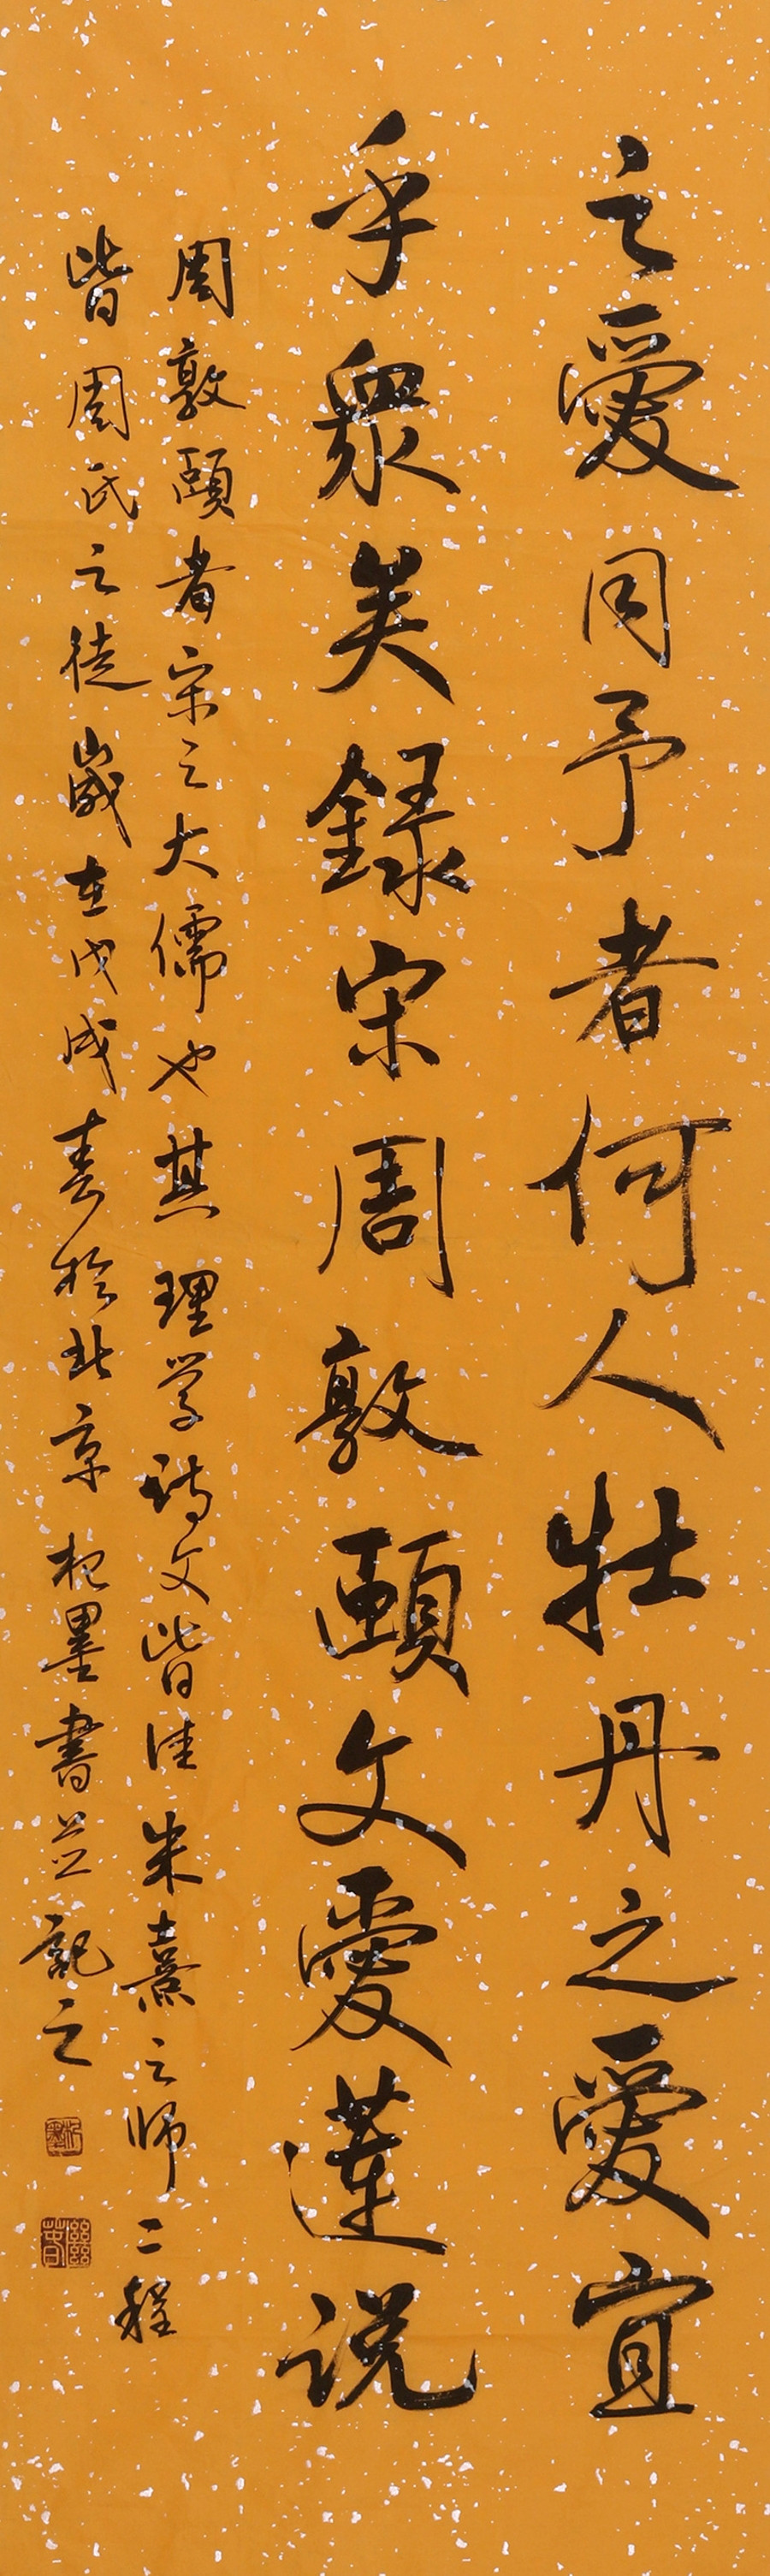 之愛同予者何人牡丹之愛宜
乎眾矣録宋周敦頤文愛蓮说
周敦頤者宋之大儒也其理学诗文皆佳朱熹之师二程
皆周氏之徒歲在戊戌春於北京 墨書並記之